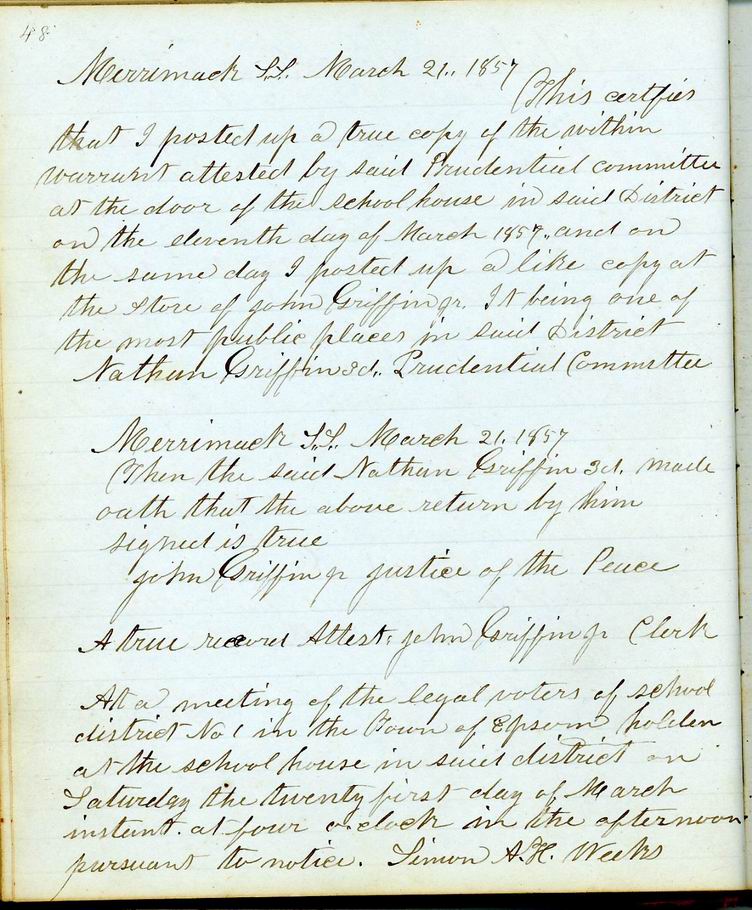 48
Merrimack S.S. March 21.. 1857
This certfies
that I posted up a true copy of the within
warrant attested by said Prudential committee
at the door of the school house in said District
on the eleventh day of March 1857. and on
the same day I posted up a like copy at
the store of john Griffin jr. It being one of
the most public places in said District
Nathan Griffin 3d.. Prudential Committee
Merrimack S.S. March 21. 1857
Then the said Nathan Griffin 3d. made
oath that the above return by him
signed is true
john Griffin jr justice of the Peace
A true record Attest: john Griffin jr Clerk
At a meeting of the legal voters of school
district No 1 in the Town of Epsom holden
at the school house in said district on
Saturday the twenty first day of March
instant. at four o.clock in the afternoon
pursuant to notice. Simon A.H. Weeks